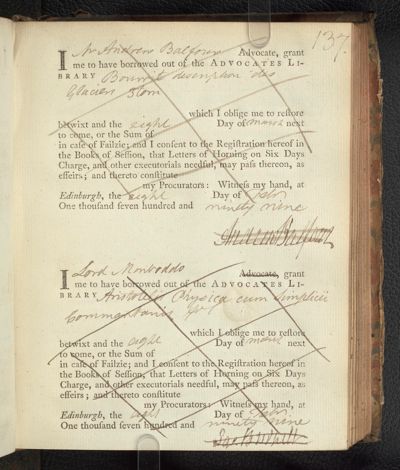 137.
I Mr Andrew Balfour Advocate, grant
me to have borrowed out of the ADVOCATES LI-
BRARY Bourrit description des
Glaciers 3tom
which I oblige me to reſtore
betwixt and the eight Day of march next
to come, or the Sum of
in caſe of Failzie; and I conſent to the Regiſtration hereof in
the Books of Seſſion, that Letters of Horning on Six Days
Charge, and other executorials needful, may paſs thereon, as
effeirs; and thereto conſtitute
my Procurators: Witneſs my hand, at
Edinburgh, the eight Day of
One thouſand ſeven hundred and ninety nine
Andrew Balfour
I Lord Monboddo Advocate, grant
me to have borrowed out of the ADVOCATES LI-
BRARY Aristotelis Physica cum Simplicii
Commentariis
which I oblige me to reſtore
betwixt and the eight Day of march next
to come, or the Sum of
in caſe of Failzie; and I conſent to the Regiſtration hereof in
the Books of Seſſion, that Letters of Horning on Six Days
Charge, and other executorials needful, may paſs thereon, as
effeirs; and thereto conſtitute
my Procurators: Witneſs my hand, at
Edinburgh, the eight Day of
One thouſand ſeven hundred and ninety nine